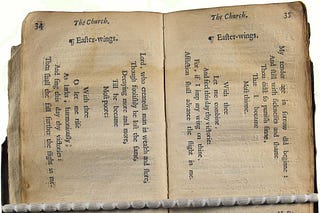 34 The Church.
¶ Easter-wings.
Lord, who createdst man in wealth and store,
Though foolishly he lost the same,
Decaying more and more,
Till he became
Most poore:
With thee
O let me rise
As larks, harmoniously,
And sing this day thy victories:
Then shall the fall further the flight in me.
The Church. 35
¶ Easter-wings.
My tender age in sorrow did beginne:
And still with sicknesses and shame
Thou didst so punish sinne,
That I became
Most thinne.
With thee
Let me combine
And feel this day thy victorie:
For, if I imp my wing on thine,
Affliction shall advance the flight in me.